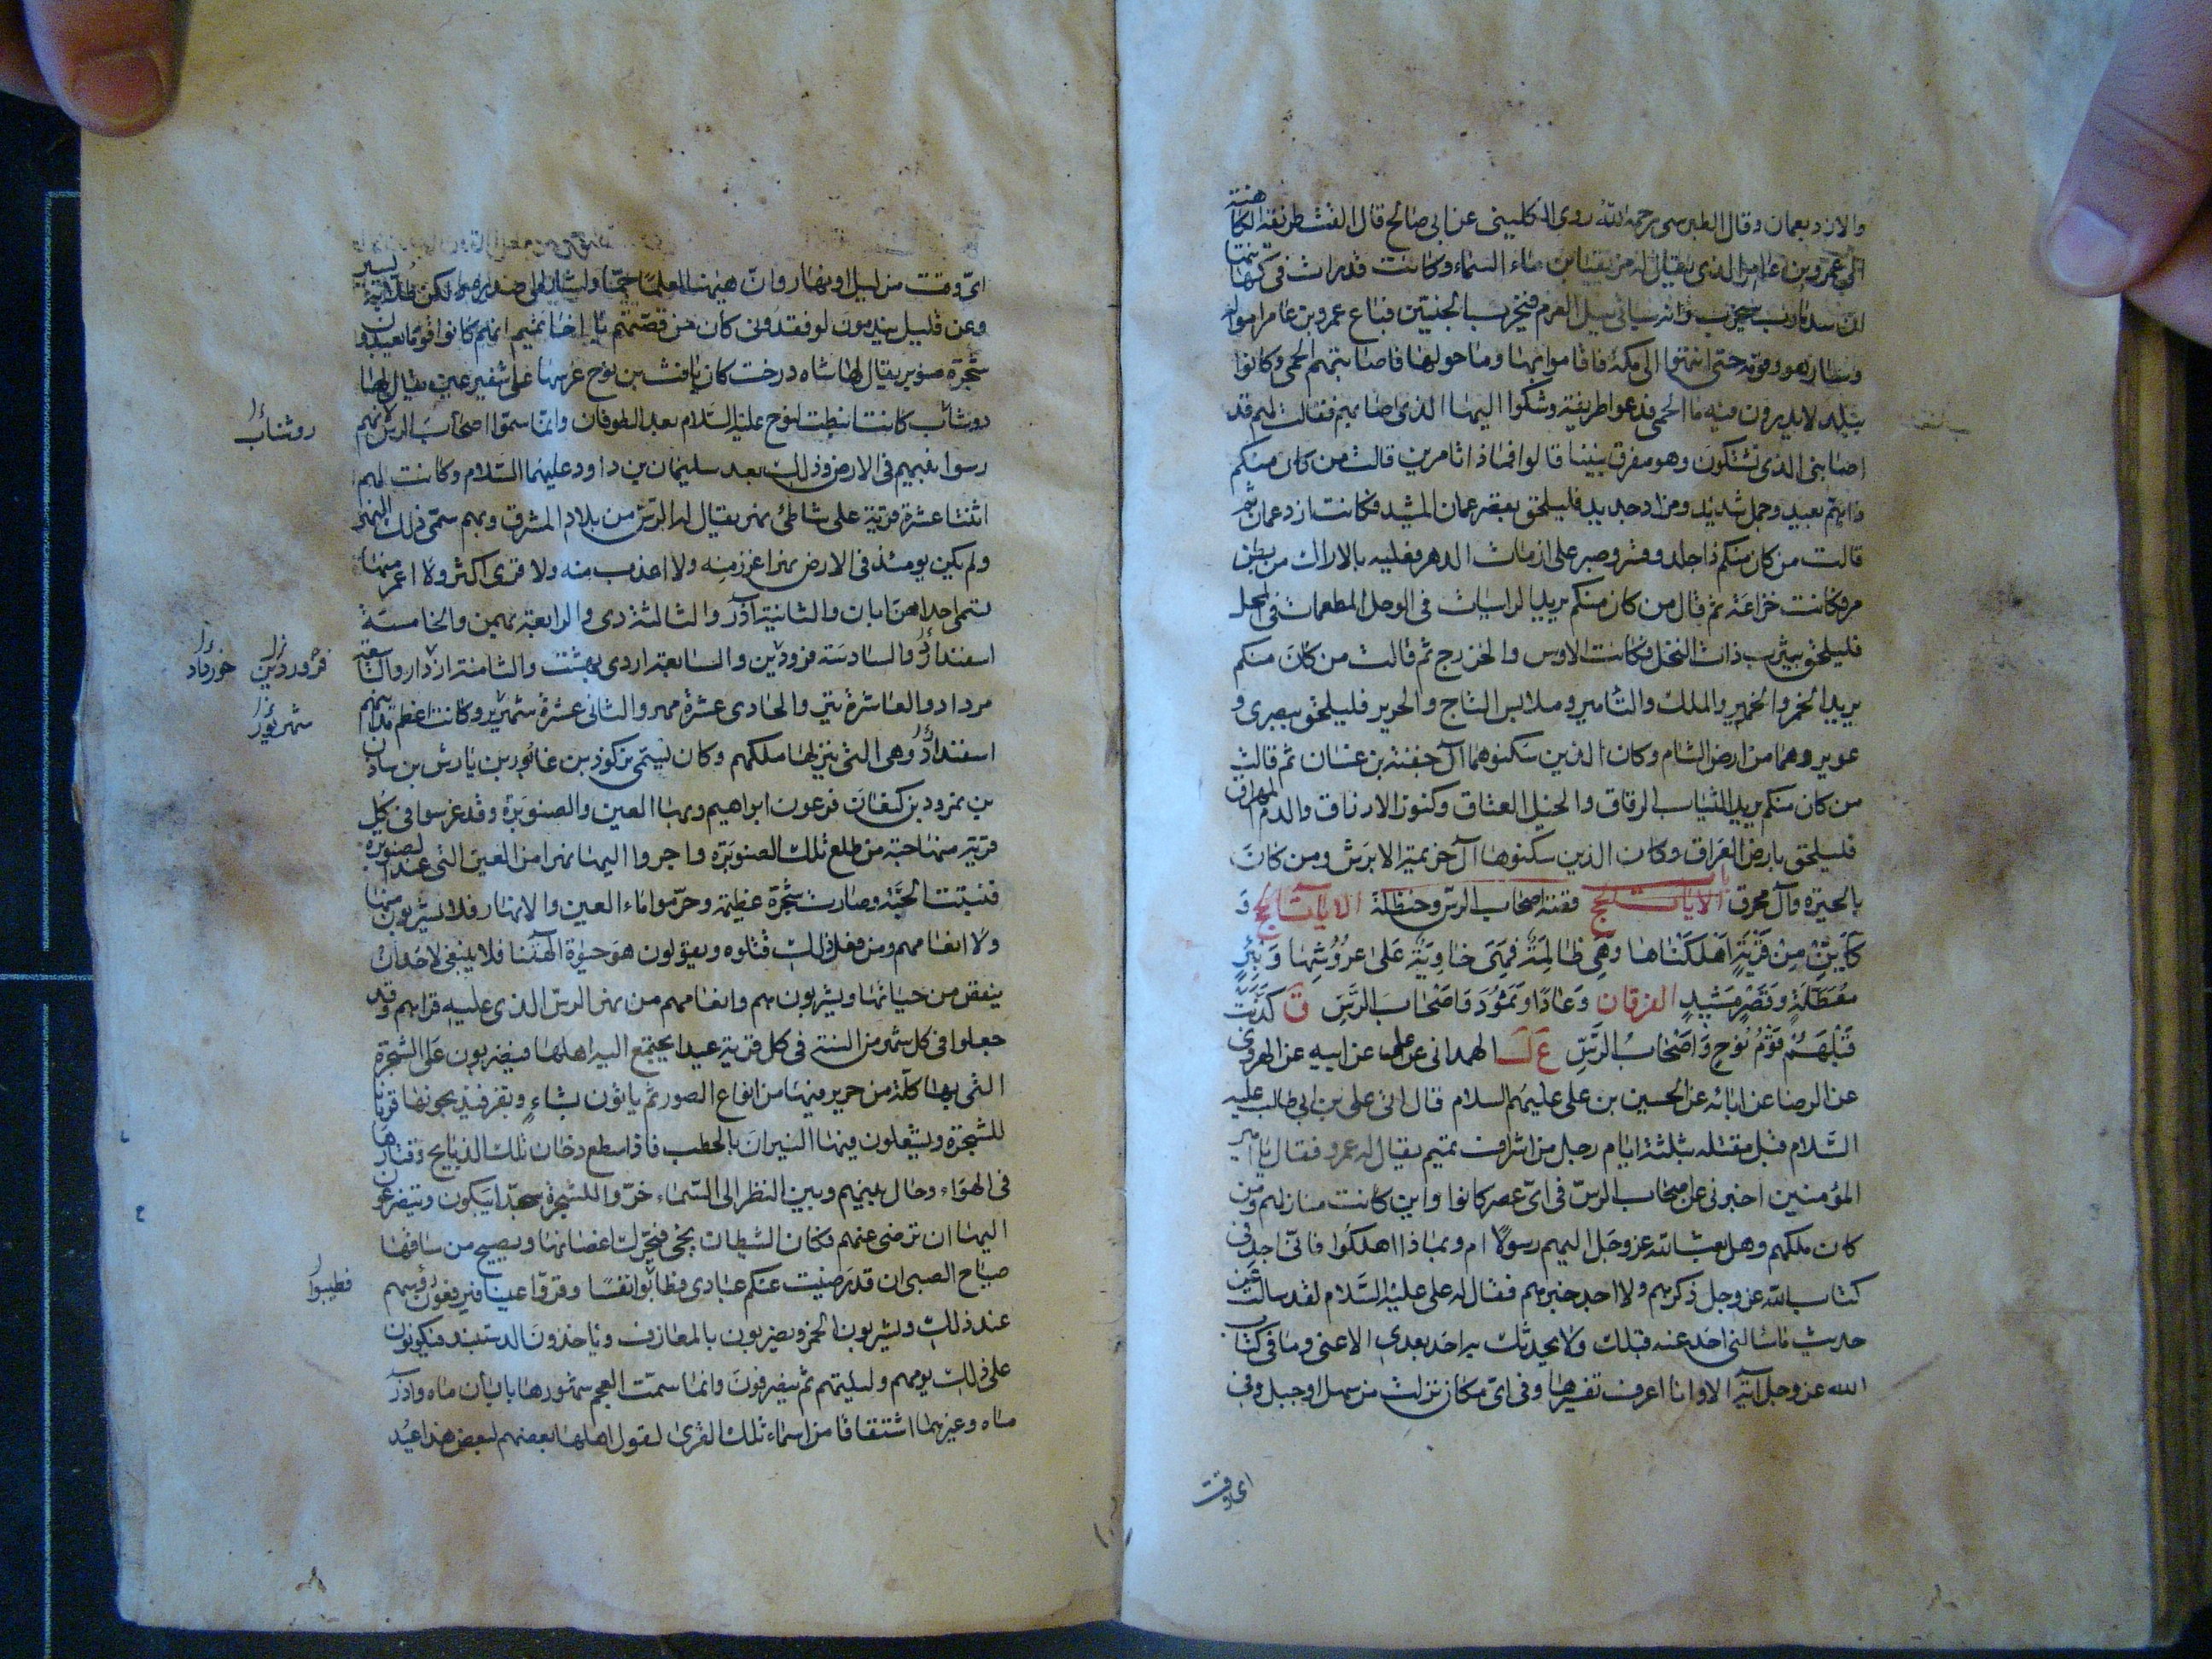 والازد بعمان وقال الطبرسي رحمه الله روى الكلبيني عن ابي صالح قال القت طريفة الكاهنة
الى عمرو بن عامر الذي يقال له مزيقيا بن ماء السماء وكانت قد رات في كهانتها
ان سد مارب سيخرب وانه سياتي سيل العرم فيخرب الجنتين فباع عمرو بن عامر امواله
وسار هو وقومه حتى انتهوا الى مكة فاقاموا بها وما حولها فاصابتهم الحمى وكانوا
ببلد لا يدرون فيه ما الحمى فدعوا طريفة وشكوا اليها الذي اصابهم فقالت لهم قد
اصابني الذي تشتكون وهو مفرق بيننا قالوا فماذا تامرين قالت من كان منكم
ذا هم بعيد وجمل شديد ومزاد جديد فليلحق بقصر عمان المشيد فكانت ازد عمان ثم
قالت من كان منكم ذا جلد وقسر وصبر على ازمات الدهر فعليه بالاراك من بطن
مر فكانت خزاعة ثم قال من كان منكم يريد الراسيات في الوحل المطعمات في المحل
فليلحق بيثرب ذات النخل فكانت الاوس والخزرج ثم قالت من كان منكم
يريد الخمر والخمير والملك والتامير وملابس التاج والحرير فليلحق ببصرى و
عوير وهما من ارض الشام وكان الذين سكنوهما آل جفنة بن غسان ثم قالت
من كان منكم يريد الثياب الرقاق والخيل العتاق وكنوز الارزاق والدم المهراق
فليلحق بارض العراق وكان الذين سكنوها آل خزيمة الابرش ومن كان
بالحيرة وآل محرق قصة اصحاب الرس وحنظلة الايات الحج وَ
كَاَيِّنْ مِنْ قَرْيَةٍ اَهْلَكْنَاهَا وَهِيَ ظَالِمَةٌ فَهِيَ خَاوِيَةٌ عَلَى عُرُوُشِهَا وَبِئْرٍ
مُعَطَّلَةٍ وَقَصْرٍ مَشيدٍ الفرقان وَعَادًا وَثَمُودَ وَاَصْحَابَ الرَّسِّ ق كَذَّبَتْ
قَبْلَهُمْ قَوْمُ نُوحٍ وَاَصْحَابُ الرَّسِّ ع ل الهمداني عن علي عن ابيه عن الهروي
عن الرضا عن ابائه عن الحسين بن علي عليهم السلام قال اتى علي بن ابي طالب عليه
السَّلام قبل مقتله بثلثة ايام رجل من اشراف تميم يقال له عمرو فقال يا امير
المؤمنين اخبرني عن اصحاب الرسّ في ايّ عصر كانوا واين كانت منازلهم ومن
كان ملكهم وهل بعث الله عز وجل اليهم رسولًا ام لا وبماذا اهلكوا فانّي اجد في
كتاب الله عز وجل ذكرهم ولا اجد خبرهم فقال له علي عليه السَّلام لقد سالت عن
حديث ما سالني احد عنه قبلك ولا يحدثك به احد بعدي الا عني وما في كتاب
الله عز وجل آية الا وانا اعرف تفسيرها وفي ايّ مكان نزلت من سهل او جبل وفي
اي وقت
ايّ وقت من ليل او نهار وانّ هيهنا لعلمًا جمًّا واشار الى صدره ولكن طلّابه يسير
وعن قليل يندمون لو فقدوني كان من قصّتهم يا اخا تميم انهم كانوا قومًا يعبدون
شجرة صنوبر يقال لها شاه درخت كان يافث بن نوح غرسها على شفير عين يقال لها
دوشاب كانت انبطت لنوح عليه السَّلام بعد الطوفان وانّما سمّوا اصحاب الرس لانهم
روشناب
رسوا نبيهم في الارض وذلك بعد سليمان بن داود عليهما السَّلام وكانت لهم
اثنتا عشرة قرية على شاطئ نهر يقال له الرسّ من بلاد المشرق وبهم سمّي ذلك النهر
ولم يكن يومئذ في الارض نهر اغزر منه ولا اعذب منه ولا قرى اكثر ولا اعمر منها
تسمى احداهن ابان والثانية آذر والثالثة دي والرابعة بهمن والخامسة
اسفندار والسادسة فرودين والسابعة اردي بهشت والثامنة ازدار والتاسعة
فروردين
خورداد
مرداد والعاشرة تير والحادي عشرة مهر والثاني عشرة شهرير وكانت اعظم مداينهم
شهريور
اسفندار وهي التي ينزلها ملكهم وكان يسمّى تركوذ بن غابور بن يارش بن سادن
بن نمرود بن كنعان فرعون ابراهيم وبها العين والصنوبرة وقد غرسوا في كل
قرية منها حبّة من طلع تلك الصنوبرة واجروا اليها نهرا من العين التي عند الصنوبرة
فنبتت الحبَّة وصارت شجرة عظيمة وحرّموا ماء العين والانهار فلا يشربون منها
ولا انعامهم ومن فعل ذلك قتلوه ويقولون هو حيوة آلهتنا فلا ينبغي لاحد ان
ينقص من حياتها ويشربون هم وانعامهم من نهر الرسّ الذي عليه قراهم وقد
جعلوا في كل شهر من السنة في كل قرية عيدا يجتمع اليه اهلها فيضربون على الشجرة
التي بها كلّة من حرير فيها من انواع الصور ثم ياتون بشاءٍ وبقر فيذبحونها قربانا
للشجرة ويشعلون فيها النيران بالحطب فاذا سطع دخان تلك الذبايح وقتارها
في الهواء وحال بينهم وبين النظر الى السّماء خرّوا للشجرة سجّدا يبكون ويتضرعون
اليها ان ترضى عنهم فكان الشيطان يجئ فيحرّك اغصانها ويصيح من ساقها
صياح الصبي ان قد رضيت عنكم عبادي فطابوا نفسًا وقرّوا عينا فيرفعون رؤسهم
فطيبوا
عند ذلك ويشربون الخمر ويضربون بالمعازف وياخذون الدستبند فيكونون
على ذلك يومهم وليلتهم ثم ينصرفون وانما سمّت العجم شهورها بابان ماه وآذر
ماه وغيرهما اشتقاقا من اسماء تلك القرى لقول اهلها بعضهم لبعض هذا عيد